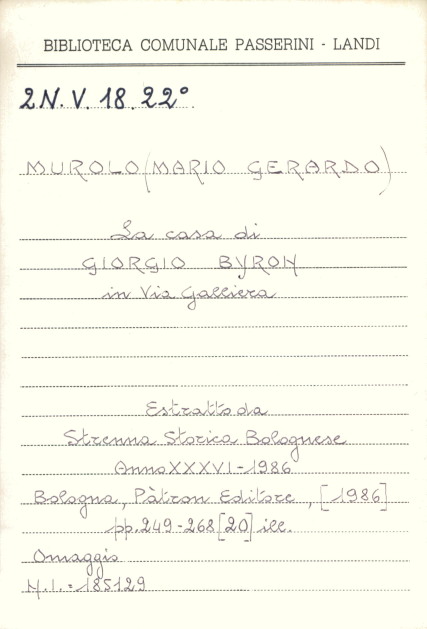 BIBLIOTECA COMUNALE PASSERINI - LANDI
2N. V. 18. 22°
MUROLO (MARIO GERARDO)
La casa di
GIORGIO BYRON
in Via Galliera
Estratto da
Strenna Storica Bolognese
Anno XXXVI - 1986
Bologna, Pàtron Editore, [1986]
pp. 249-268 [20] ill.
Omaggio
N.I. = 185129